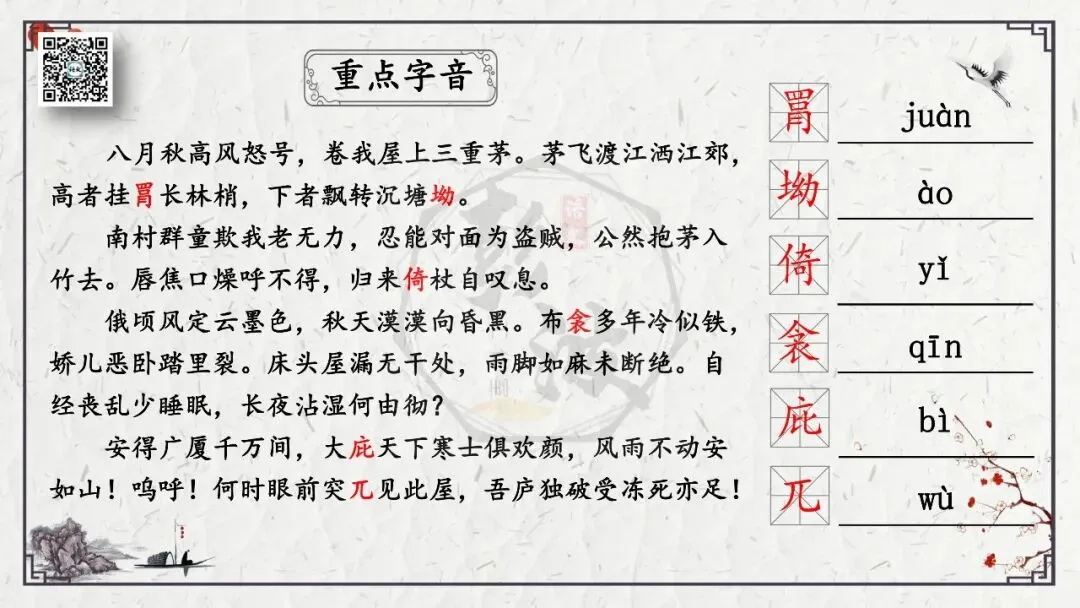 重点字音
八月秋高风怒号，卷我屋上三重茅。茅飞渡江洒江郊，
高者挂罥长林梢，下者飘转沉塘坳。
南村群童欺我老无力，忍能对面为盗贼，公然抱茅入
竹去。唇焦口燥呼不得，归来倚杖自叹息。
俄顷风定云墨色，秋天漠漠向昏黑。布衾多年冷似铁，
娇儿恶卧踏里裂。床头屋漏无干处，雨脚如麻未断绝。自
经丧乱少睡眠，长夜沾湿何由彻？
安得广厦千万间，大庇天下寒士俱欢颜，风雨不动安
如山！呜呼！何时眼前突兀见此屋，吾庐独破受冻死亦足！
罥 juàn
坳 ào
倚 yǐ
衾 qīn
庇 bì
兀 wù